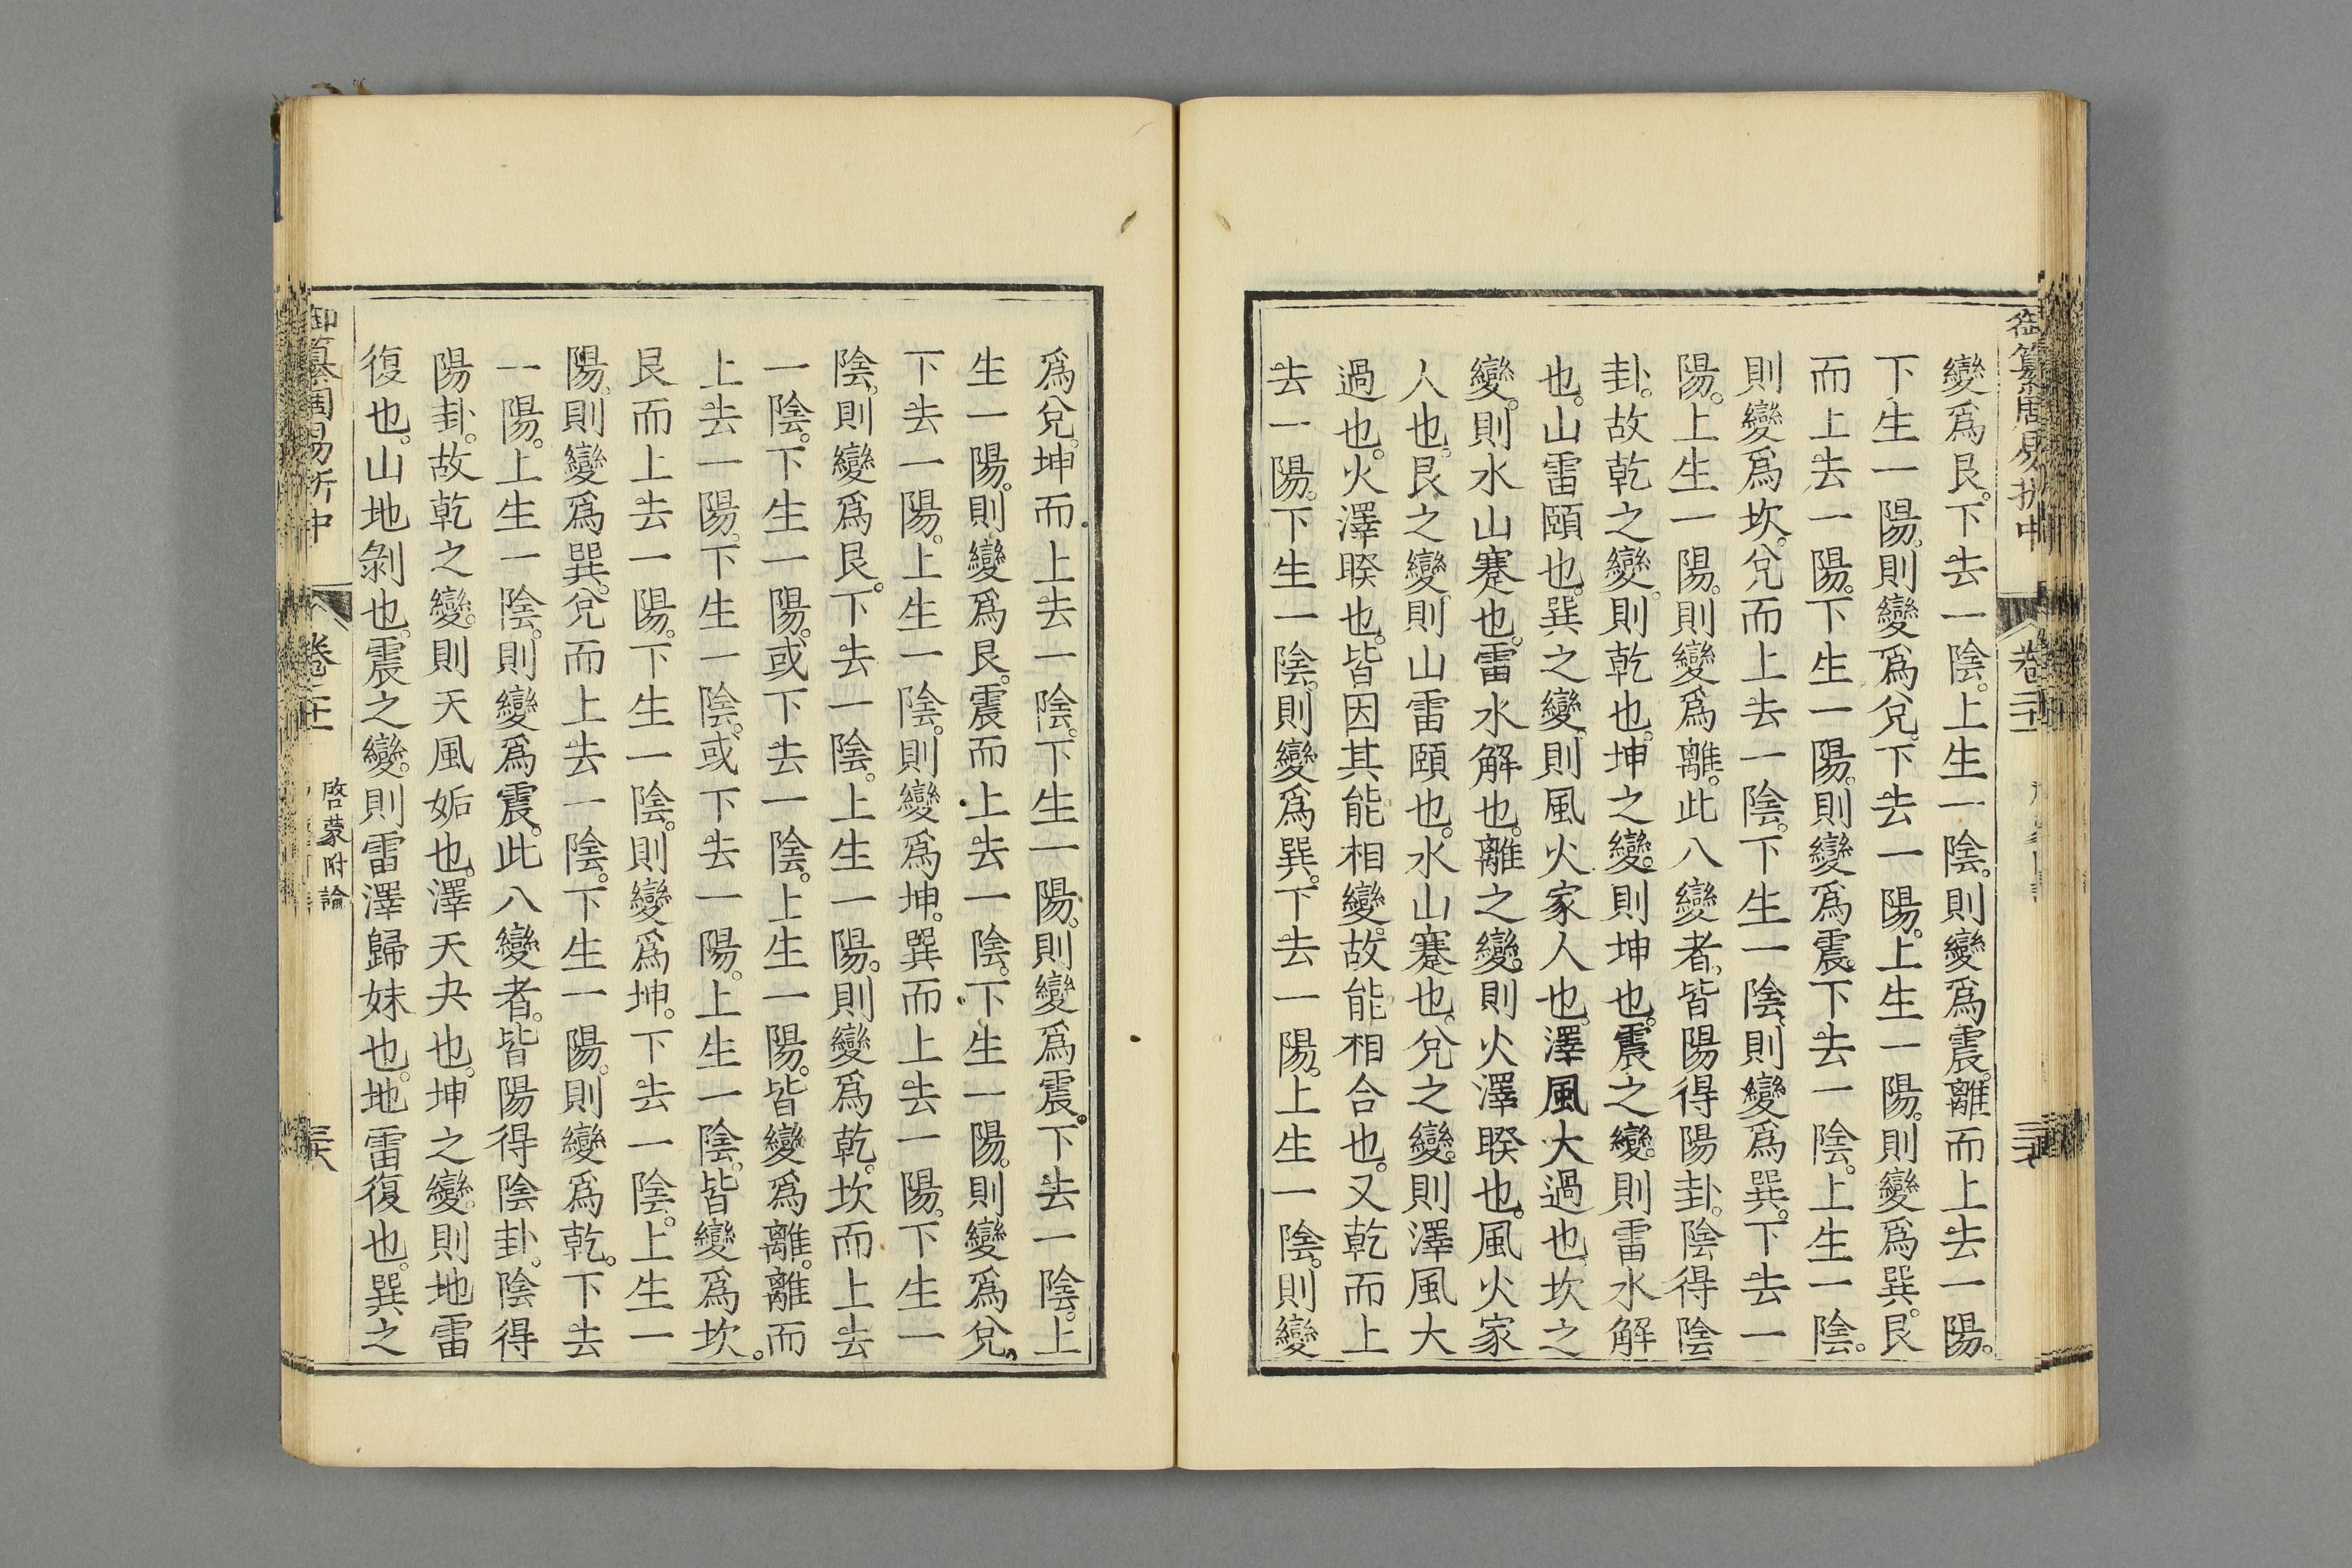 變爲艮。下去一陰。上生一陰。則變爲震。離而上去一陽。
下生一陽。則變爲兌。下去一陽。上生一陽。則變爲巽。艮
而上去一陽。下生一陽。則變爲震。下去一陰。上生一陰。
則變爲坎。兌而上去一陰。下生一陰。則變爲巽。下去一
陽。上生一陽。則變爲離。此八變者。皆陽得陽卦。陰得陰
卦。故乾之變。則乾也。坤之變。則坤也。震之變。則雷水解
也。山雷頤也。巽之變。則風火家人也。澤風大過也。坎之
變。則水山蹇也。雷水解也。離之變。則火澤睽也。風火家
人也。艮之變。則山雷頤也。水山蹇也。兌之變。則澤風大
過也。火澤睽也。皆因其能相變。故能相合也。又乾而上
去一陽。下生一陰。則變爲巽。下去一陽。上生一陰。則變
爲兌。坤而上去一陰。下生一陽。則變爲震。下去一陰。上
生一陽。則變爲艮。震而上去一陰。下生一陽。則變爲兌。
下去一陽。上生一陰。則變爲坤。巽而上去一陽。下生一
陰。則變爲艮。下去一陰。上生一陽。則變爲乾。坎而上去
一陰。下生一陽。或下去一陰。上生一陽。皆變爲離。離而
上去一陽。下生一陰。或下去一陽。上生一陰。皆變爲坎。
艮而上去一陽。下生一陰。則變爲坤。下去一陰。上生一
陽。則變爲巽。兌而上去一陰。下生一陽。則變爲乾。下去
一陽。上生一陰。則變爲震。此八變者。皆陽得陰卦。陰得
陽卦。故乾之變。則天風姤也。澤天夬也。坤之變。則地雷
復也。山地剝也。震之變。則雷澤歸妹也。地雷復也。巽之
御纂周易折中
卷
啓蒙附論